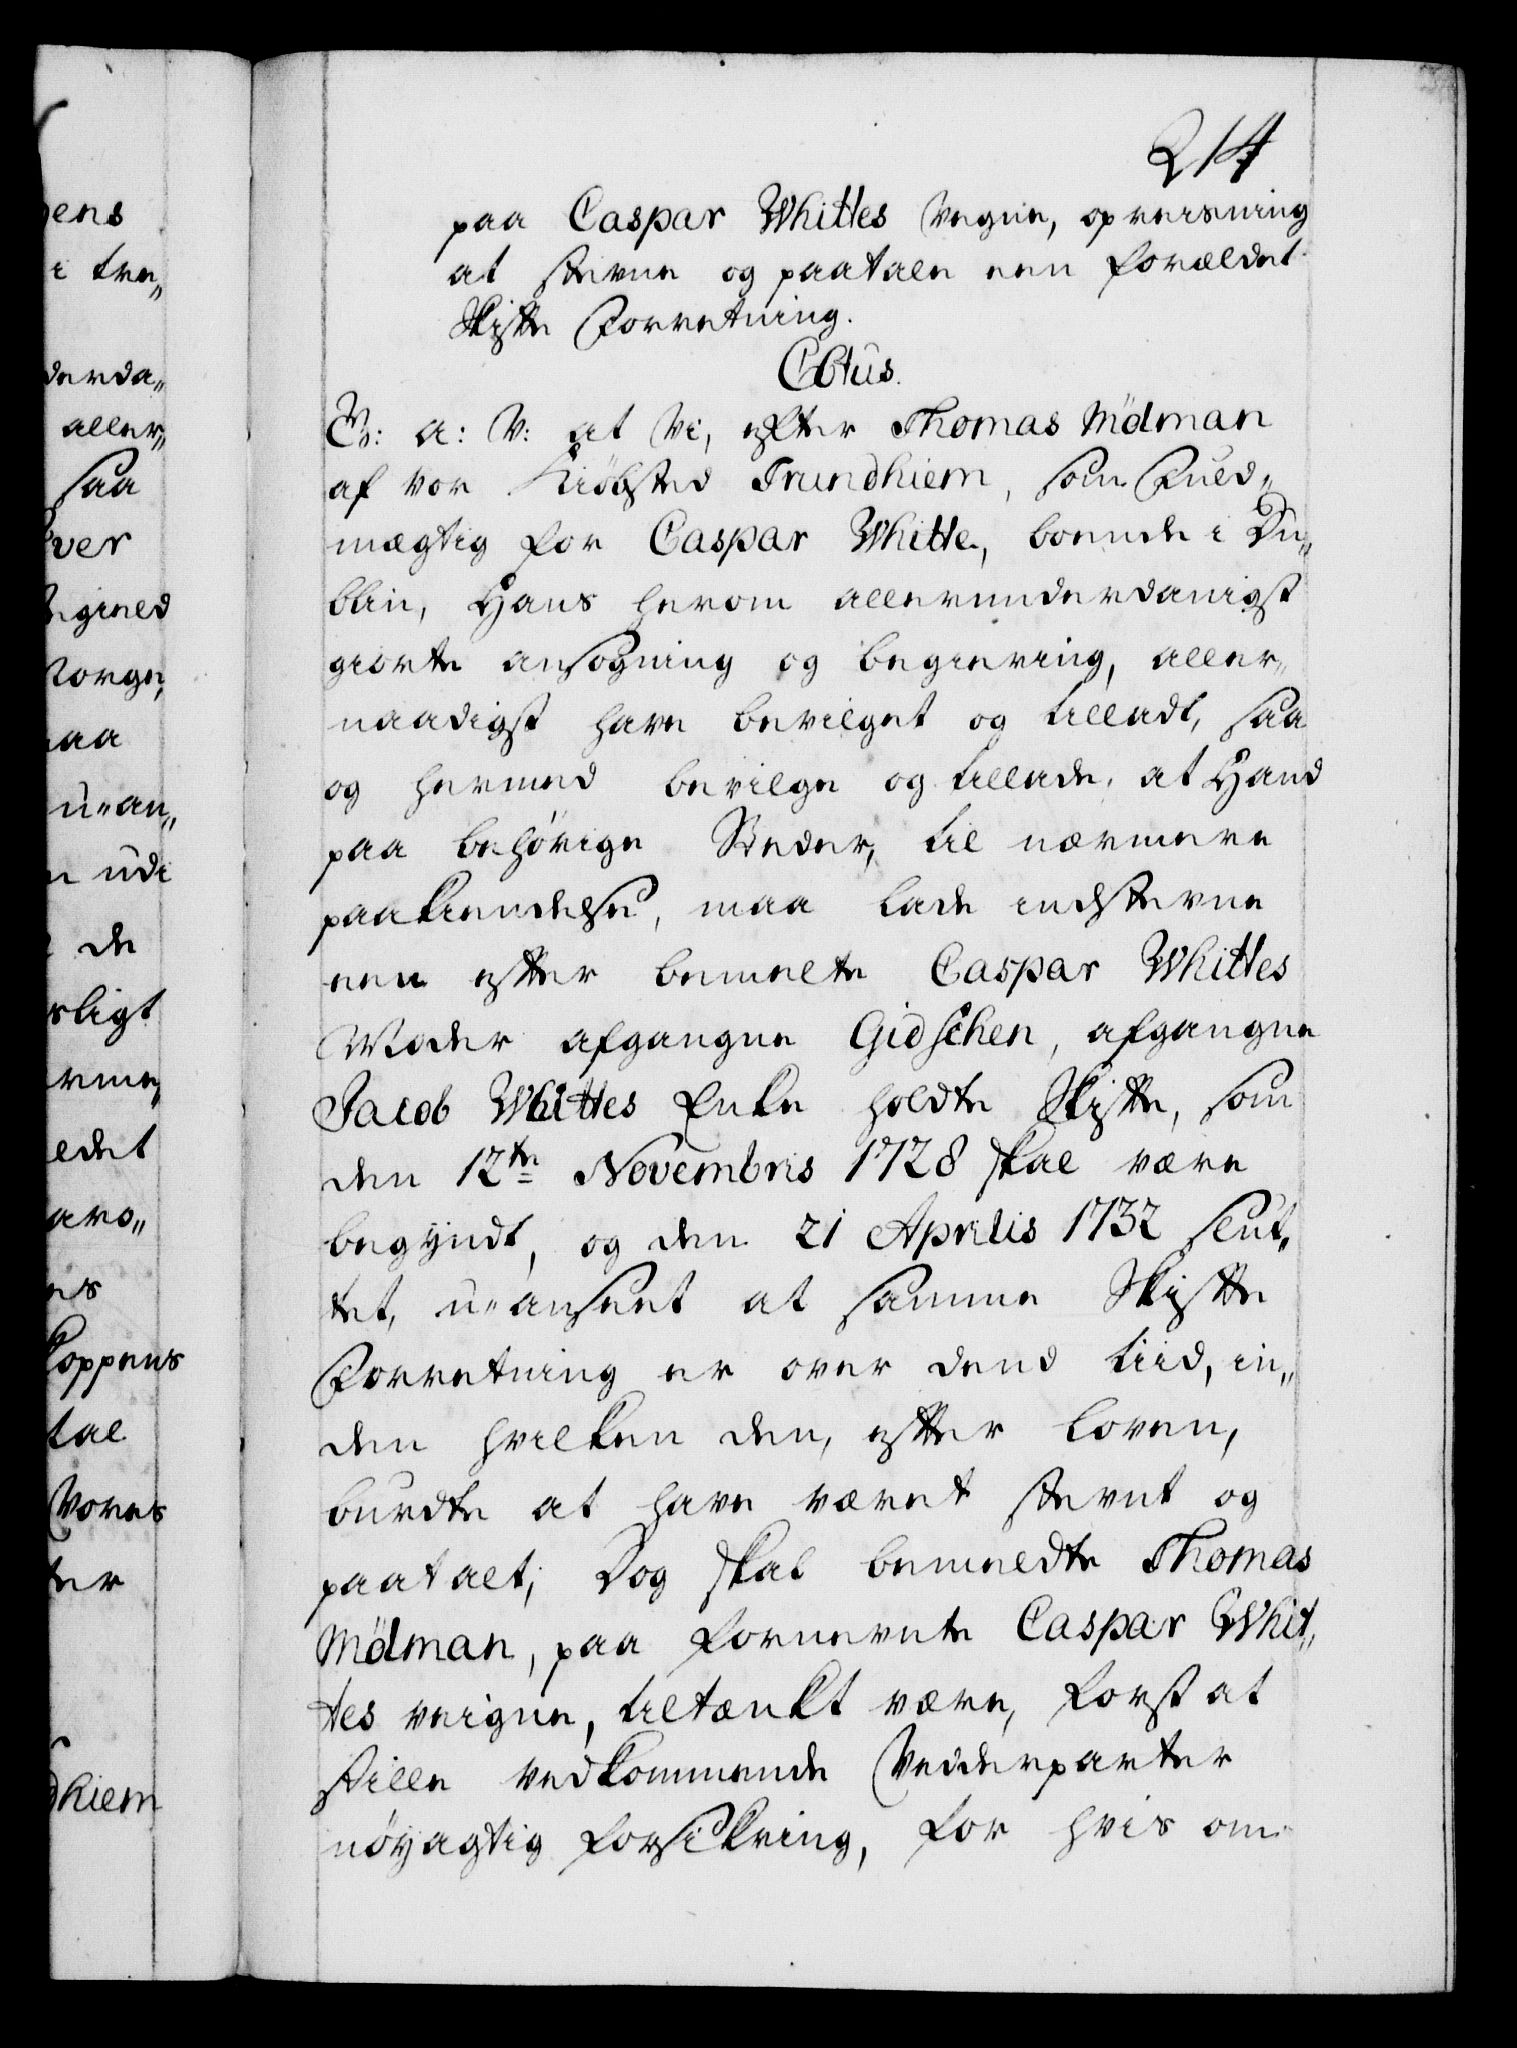 214
paa Caspar Whittes Vegne, opreisning
at stevne og paatale een forældet
Skifte Forretning.
C6tus.
G: a: V: at Vi, efter Thomas Mölman
af vor Kiöbsted Trundhiem, som Fuld„
mægtig for Caspar Whitte, boende i Du„
blin, Hans herom allerunderdanigst
giorte ansögning og begiering, aller„
naadigst have bevilget og tilladt, saa
og hermed bevilge og tillade, at Hand
paa behörige Steder, til nærmere
paakiendelse, maa lade indstevne
een efter bemelte Caspar Whittes
Moder afgangne Gidschen, afgangne
Jacob Whittes Enke holdte Skifte, som
den 12te Novembris 1728 skal være
begyndt, og den 21 Aprilis 1732 slut„
tet, u-anseet at samme Skifte
Forretning er over dend tiid, in„
den hvilken den, efter Loven,
burdte at have været stevnt og
paatalt; Dog skal bemeldte Thomas
Mölman, paa fornevnte Caspar Whit„
tes veigne, tiltænkt være, først at
stille vedkommende Vedderparter
nöyagtig forsikring, for hvis om
ens
i tre„
derda„
aller„
saa
ver
gield
Norge,
aa
u-an„
udi
de
rligt
edet
aro„
es
Koppens
tal
Vores
ter
dhiem